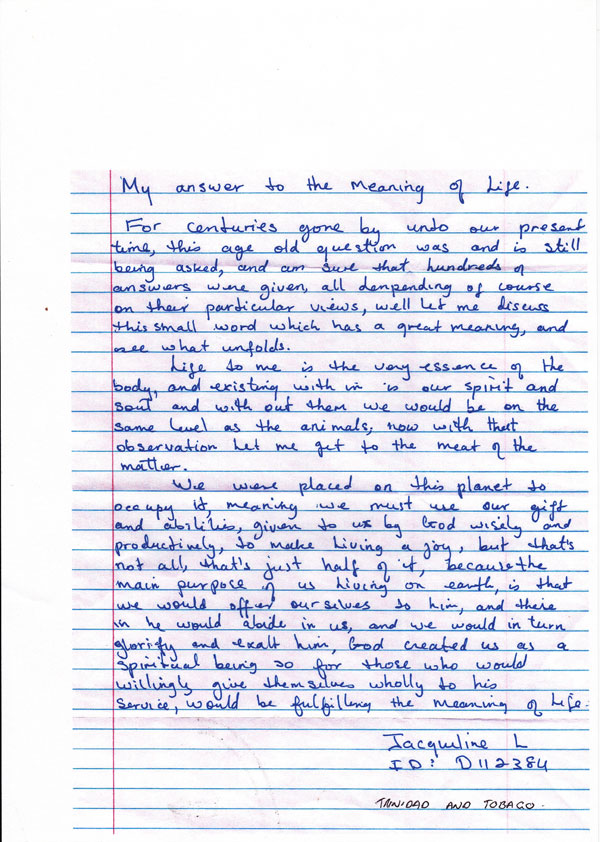 My answer to the Meaning of Life.
For centuries gone by undo our present
time, this age old question was and is still
being asked, and am sure that hundreds of
answers were given, all denpending of course
on their particular views, well let me discuss
this small word which has a great meaning, and
see what unfolds.
Life to me is the very essence of the
body, and existing with in is our spirit and
soul and with out them we would be on the
same level as the animals, now with that
observation let me get to the meat of the
matter.
We were placed on this planet to
occupy it, meaning we must use our gift
and abilities, given to us by God wisely and
productively, to make living a joy, but that's
not all, that's just half of it, because the
main purpose of us living on earth, is that
we would offer ourselves to him, and there
in he would abide in us, and we would in turn
glorify and exalt him, God created us as a
spiritual being so for those who would
willingly give themselves wholly to his
service, would be fulfilling the meaning of Life.
Jacqueline L
ID: D112384
TRINIDAD AND TOBAGO.